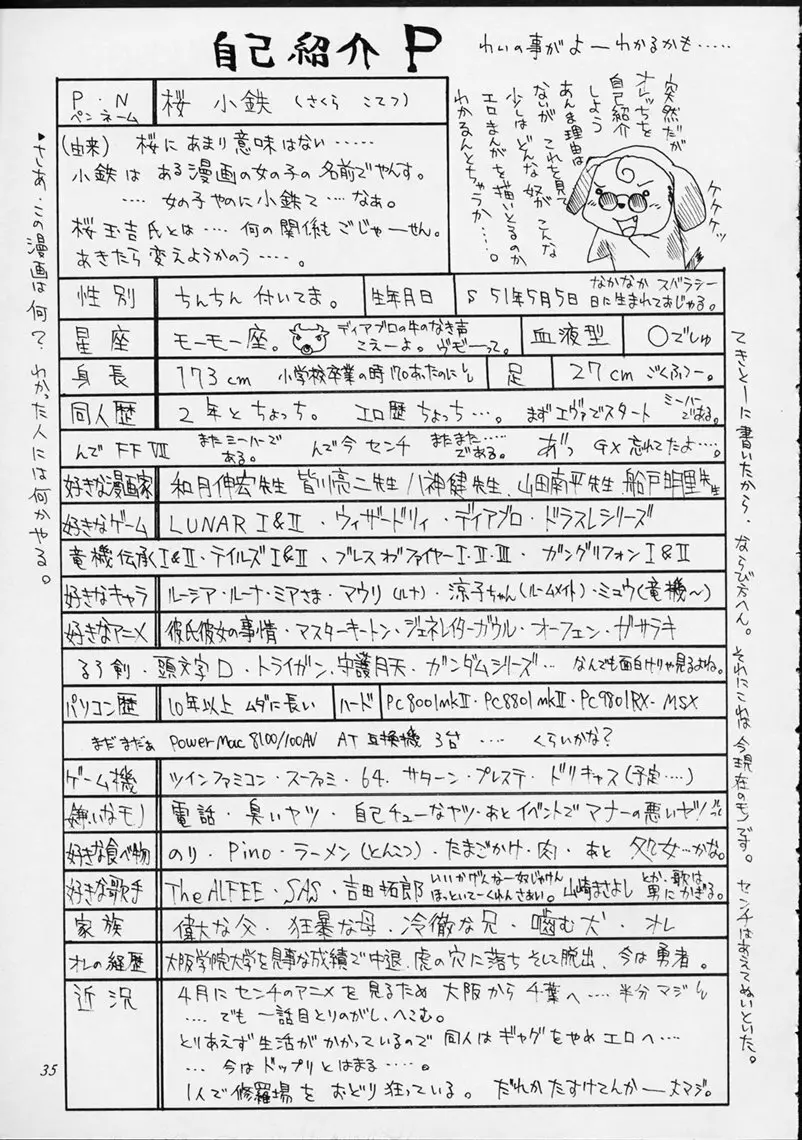 自己紹介 P
わいの事がよーわかるかも‥‥‥
突然だが
オレッちを
自己紹介
しよう
あんま理由は
ないが これを見て
少しは どんな奴が こんな
エロまんがを描いとるのか
わかるんとちゃうか‥‥。
ケケケッ
P・N
ペンネーム
桜 小鉄 (さくら こてつ)
(由来) 桜に あまり意味はない‥‥‥
小鉄は ある漫画の女の子の名前でやんす。
‥‥ 女の子やのに小鉄て‥‥なぁ。
桜玉吉氏とは‥‥ 何の関係もごじゃーせん。
あきたら変えようかのう‥‥‥。
性別 ちんちん付いてま。 生年月日 S 51年5月5日 なかなか スバラシー
日に生まれておじゃる。
星座 モーモー座。 ディアブロの牛のなき声
こえーよ。ヴモーって。 血液型 ○でしゅ
身長 173cm 小学校卒業の時170あったのに 足 27cm ごくふつー。
同人歴 2年とちょっち。 エロ歴ちょっち‥‥。 まずエヴァでスタート ミーハー
である。
んで FF Ⅶ またミーハーで
ある。 んで今 センチ またまた‥‥
である。 あっ GX忘れてたよ‥‥。
好きな漫画家 和月伸宏先生 皆川亮二先生 八神健先生、山田南平先生、船戸明里先生
好きなゲーム LUNAR Ⅰ&Ⅱ・ウィザードリィ・ディアブロ・ドラスレシリーズ
竜機伝承Ⅰ&Ⅱ・テイルズⅠ&Ⅱ、ブレス オブ ファイヤーⅠ・Ⅱ・Ⅲ・ ガングリフォンⅠ&Ⅱ
好きなキャラ ルーシア・ルーナ・ミアさま・マウリ(ルナ)・涼子ちゃん(ルームメイト)・ミュウ(竜機〜)
好きなアニメ 彼氏彼女の事情・マスターキートン・ジェネレイターガウル・オーフェン・ガサラキ
るろ剣・頭文字D・トライガン、守護月天・ガンダムシリーズ‥‥ なんでも面白けりゃ見るよね。
パソコン歴 10年以上 ムダに長い ハード PC8001mkⅡ・PC8801mkⅡ・PC9801RX・MSX
まだまだぁ Power Mac 8100/100AV AT互換機 3台 ‥‥ くらいかな?
ゲーム機 ツインファミコン・スーファミ・64、サターン・プレステ・ドリキャス(予定‥‥)
嫌いなモノ 電話・臭いヤツ・自己チューなヤツ・あとイベントでマナーの悪いヤツ!
好きな食べ物 のり・Pino・ラーメン(とんこつ)・たまごかけ・肉・あと 処女‥‥かな。
好きな歌手 The ALFEE・SAS・吉田拓郎 いいかげんなー奴じゃけん
ほっといてーくれんさあい。 山崎まさよし とか、歌は
男にかぎる。
家族 偉大な父・狂暴な母・冷徹な兄・噛む犬・オレ
オレの経歴 大阪学院大学を見事な成績で中退、虎の穴に落ち そして脱出、今は勇者。
近況 4月にセンチのアニメを見るため 大阪から千葉へ‥‥ 半分マジ
‥‥でも一話目とりのがし、へこむ。
とりあえず生活がかかっているので 同人はギャグをやめエロへ‥‥
‥‥今は ドップリとはまる‥‥。
1人で修羅場を おどり狂っている。 だれか たすけてんか──大マジ。
♥さあ、この漫画は何? わかった人には何かやる。
てきとーに書いたから、ならび方へん。それにこれは今現在のモンです。センチはあえてぬいといた。
35